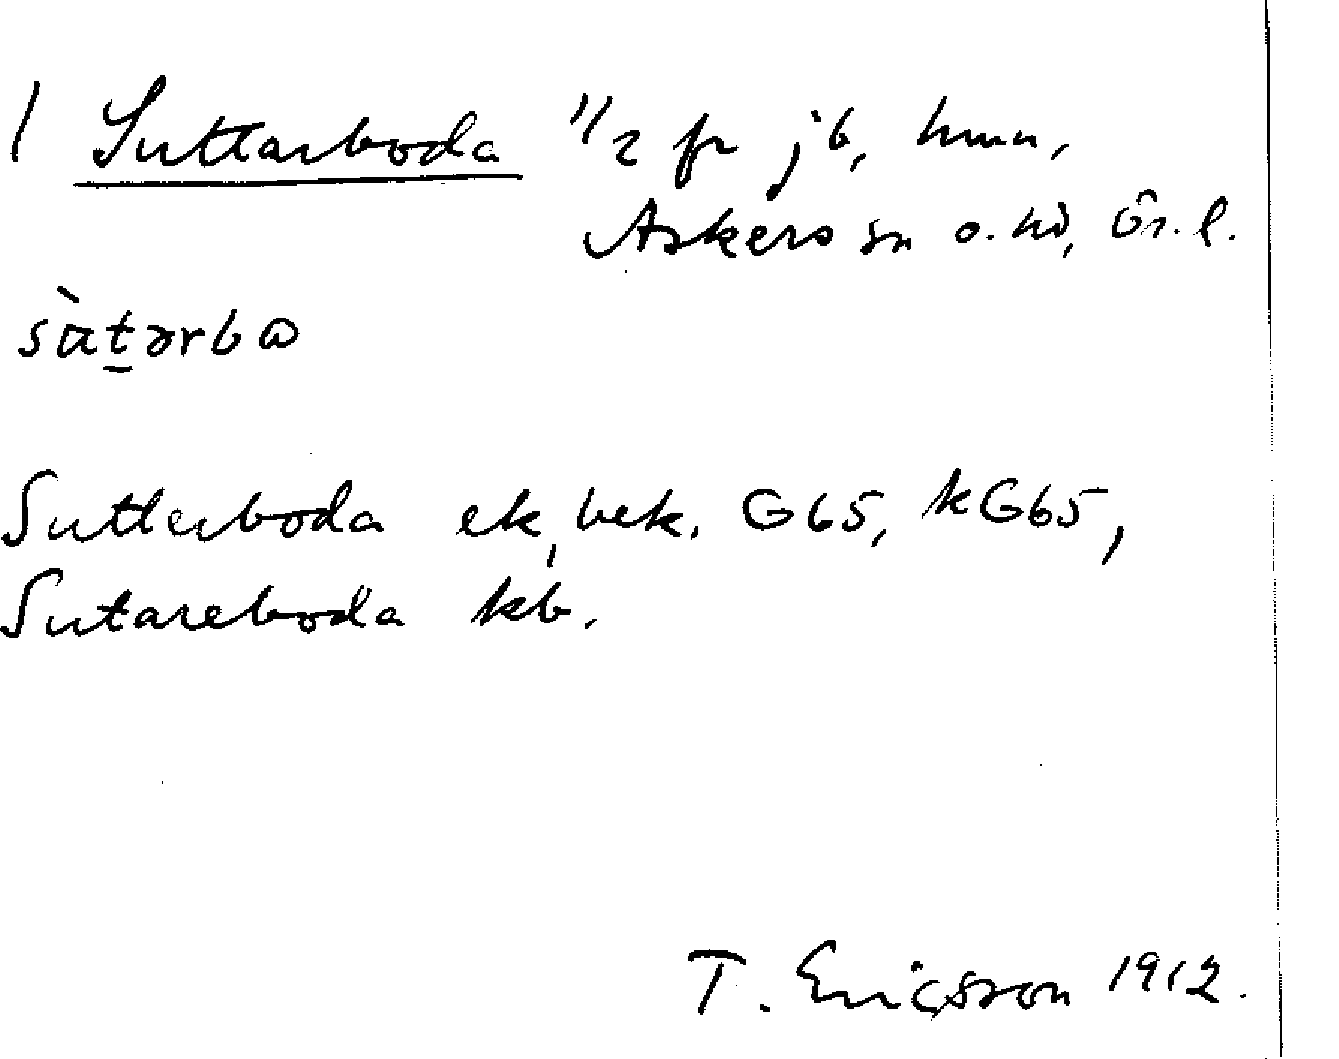 / Suttarboda 1/2 fr jb, hmn,
Askers sn o. hd, Ör. l.
sàtərbɷ
Sutterboda ek, bek. G65, kG65,
Sutareboda kb.
T. Ericsson 1912.